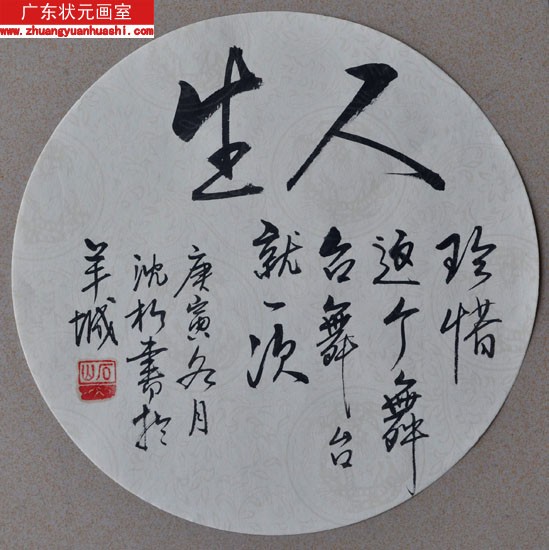 广东状元画室
www.zhuangyuanhuashi.com
人生
珍惜
這个舞
台舞台
就一次
庚寅冬月
沈書於
羊城